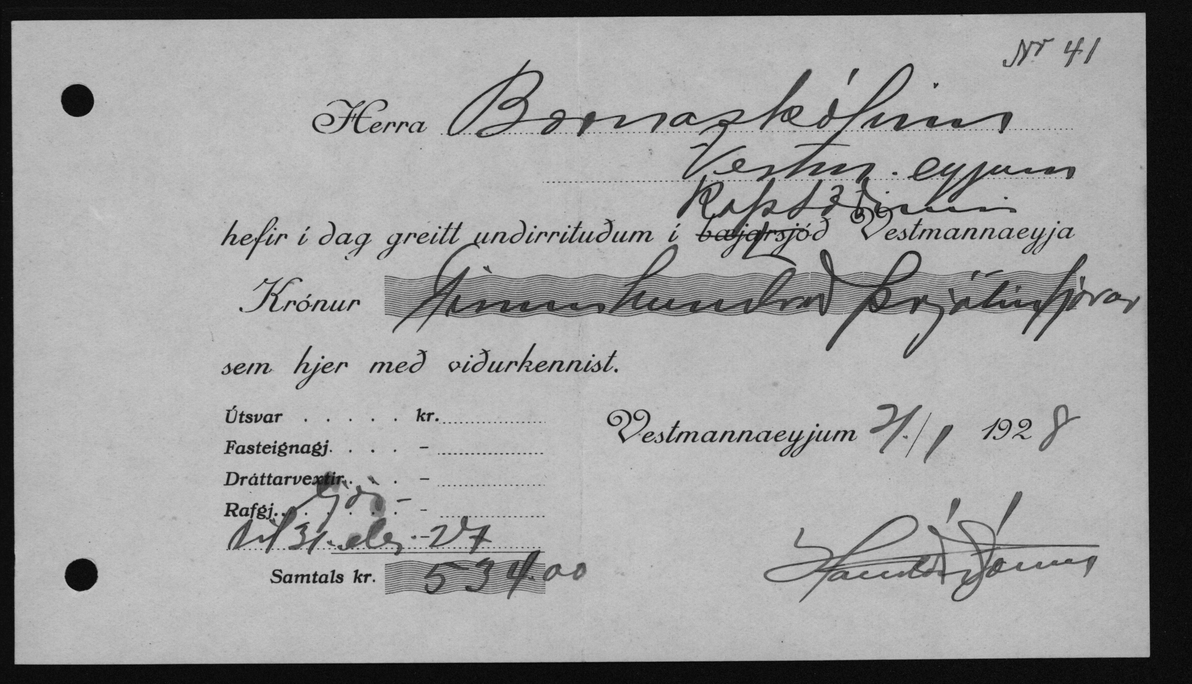 Nr 41
Herra Barnaskólinn
Vestm. eyjum
Rafstöðinni
hefir í dag greitt undirrituðum í bæjarsjóð Vestmannaeyja
Krónur Fimmhundrað þrjátíufjórar
sem hjer með viðurkennist.
Útsvar . . . . . kr.
Fasteignagj. . . . . –
Dráttarvextir. . . . –
Rafgj. . . . . . . –
til 31. des. -27
Samtals kr. 534.00
Vestmannaeyjum 21/1 1928